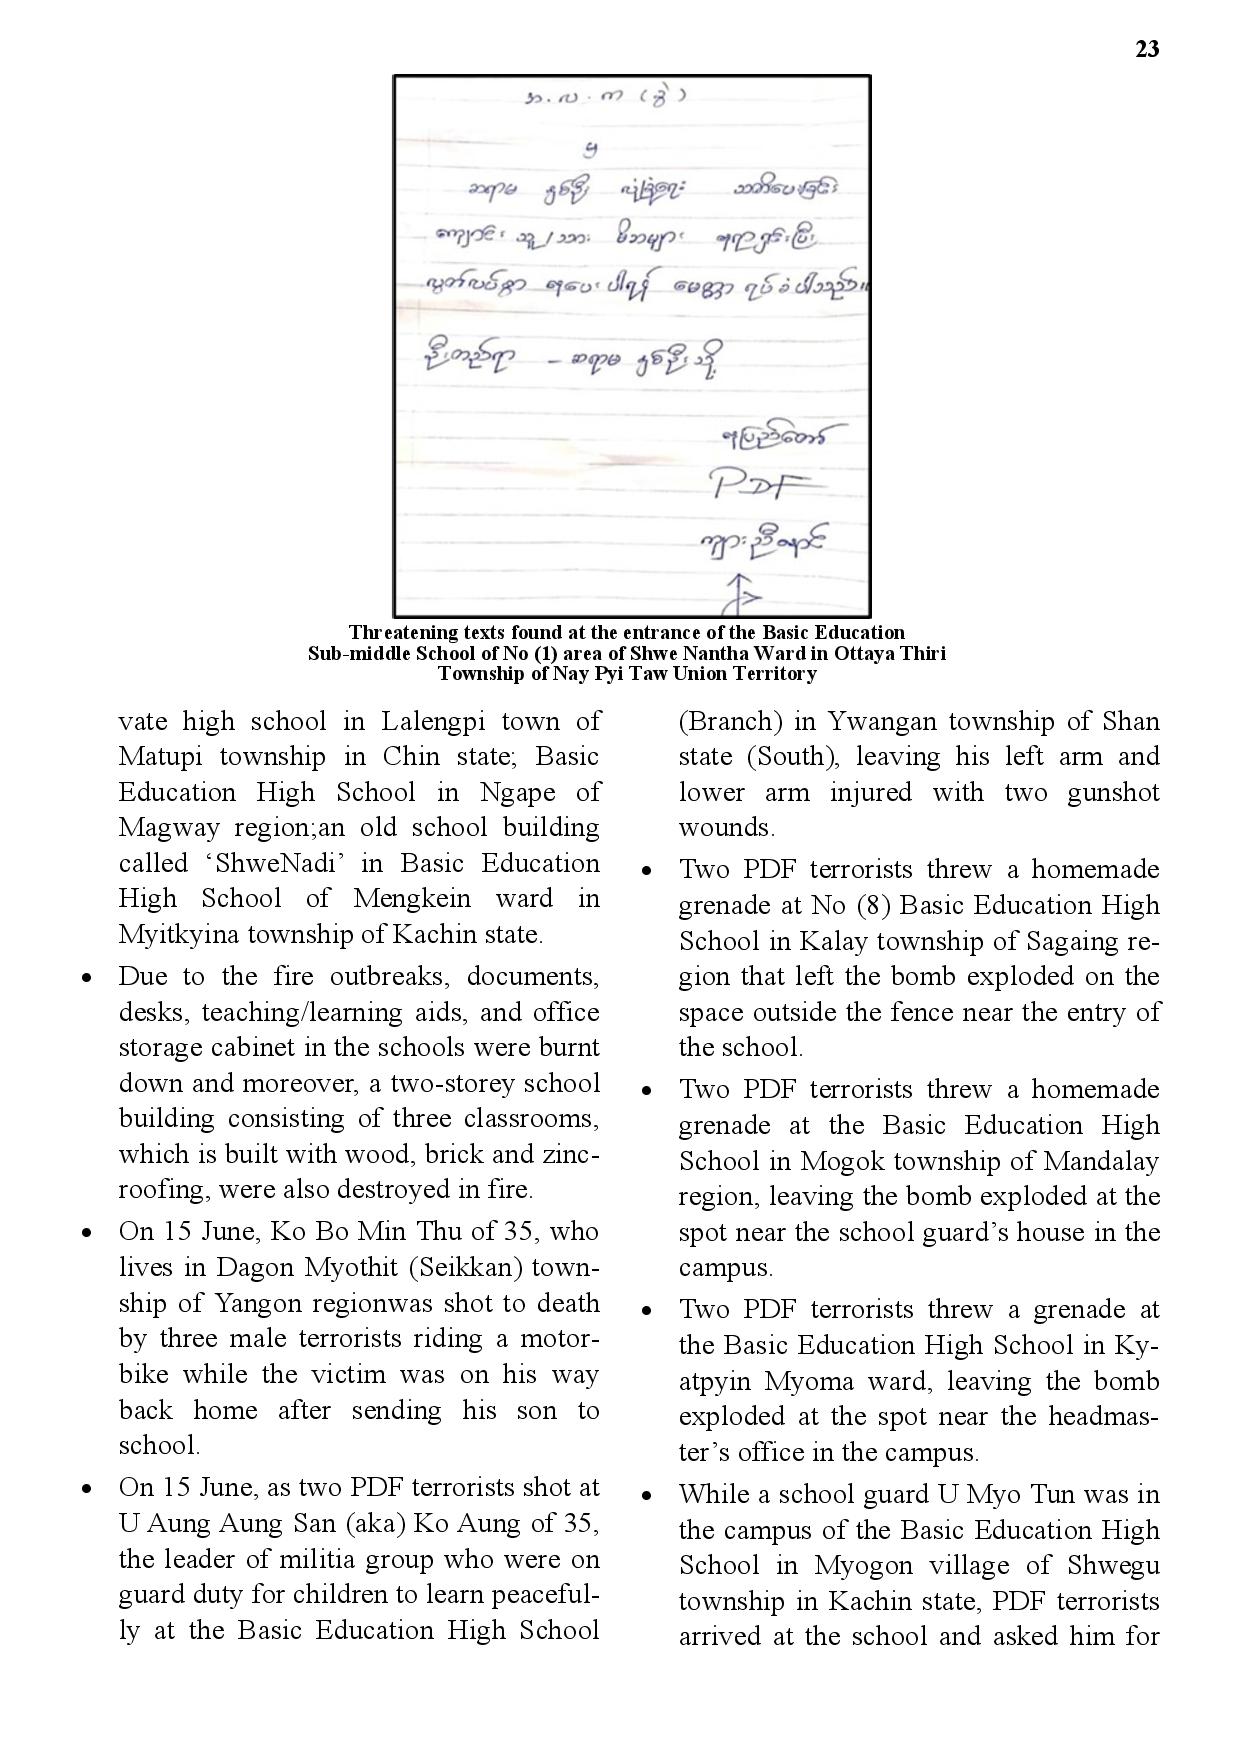 23
အ.လ.က (ခွဲ)
မှ
ဆရာမ နှစ်ဦး လုံခြုံရေး သတိပေးခြင်း
ကျောင်း သူ/သား မိဘများ
လွတ်လပ်စွာ ပေးပါရန် မေတ္တာ ရပ်ခံပါသည်။
ဦးတည်ရာ - ဆရာမ နှစ်ဦးသို့
နေပြည်တော်
PDF
ကျားညီနောင်
Threatening texts found at the entrance of the Basic Education
Sub-middle School of No (1) area of Shwe Nantha Ward in Ottaya Thiri
Township of Nay Pyi Taw Union Territory
vate high school in Lalengpi town of
Matupi township in Chin state; Basic
Education High School in Ngape of
Magway region;an old school building
called ‘ShweNadi’ in Basic Education
High School of Mengkein ward in
Myitkyina township of Kachin state.
• Due to the fire outbreaks, documents,
desks, teaching/learning aids, and office
storage cabinet in the schools were burnt
down and moreover, a two-storey school
building consisting of three classrooms,
which is built with wood, brick and zinc-
roofing, were also destroyed in fire.
• On 15 June, Ko Bo Min Thu of 35, who
lives in Dagon Myothit (Seikkan) town-
ship of Yangon regionwas shot to death
by three male terrorists riding a motor-
bike while the victim was on his way
back home after sending his son to
school.
• On 15 June, as two PDF terrorists shot at
U Aung Aung San (aka) Ko Aung of 35,
the leader of militia group who were on
guard duty for children to learn peaceful-
ly at the Basic Education High School
(Branch) in Ywangan township of Shan
state (South), leaving his left arm and
lower arm injured with two gunshot
wounds.
• Two PDF terrorists threw a homemade
grenade at No (8) Basic Education High
School in Kalay township of Sagaing re-
gion that left the bomb exploded on the
space outside the fence near the entry of
the school.
• Two PDF terrorists threw a homemade
grenade at the Basic Education High
School in Mogok township of Mandalay
region, leaving the bomb exploded at the
spot near the school guard’s house in the
campus.
• Two PDF terrorists threw a grenade at
the Basic Education High School in Ky-
atpyin Myoma ward, leaving the bomb
exploded at the spot near the headmas-
ter’s office in the campus.
• While a school guard U Myo Tun was in
the campus of the Basic Education High
School in Myogon village of Shwegu
township in Kachin state, PDF terrorists
arrived at the school and asked him for